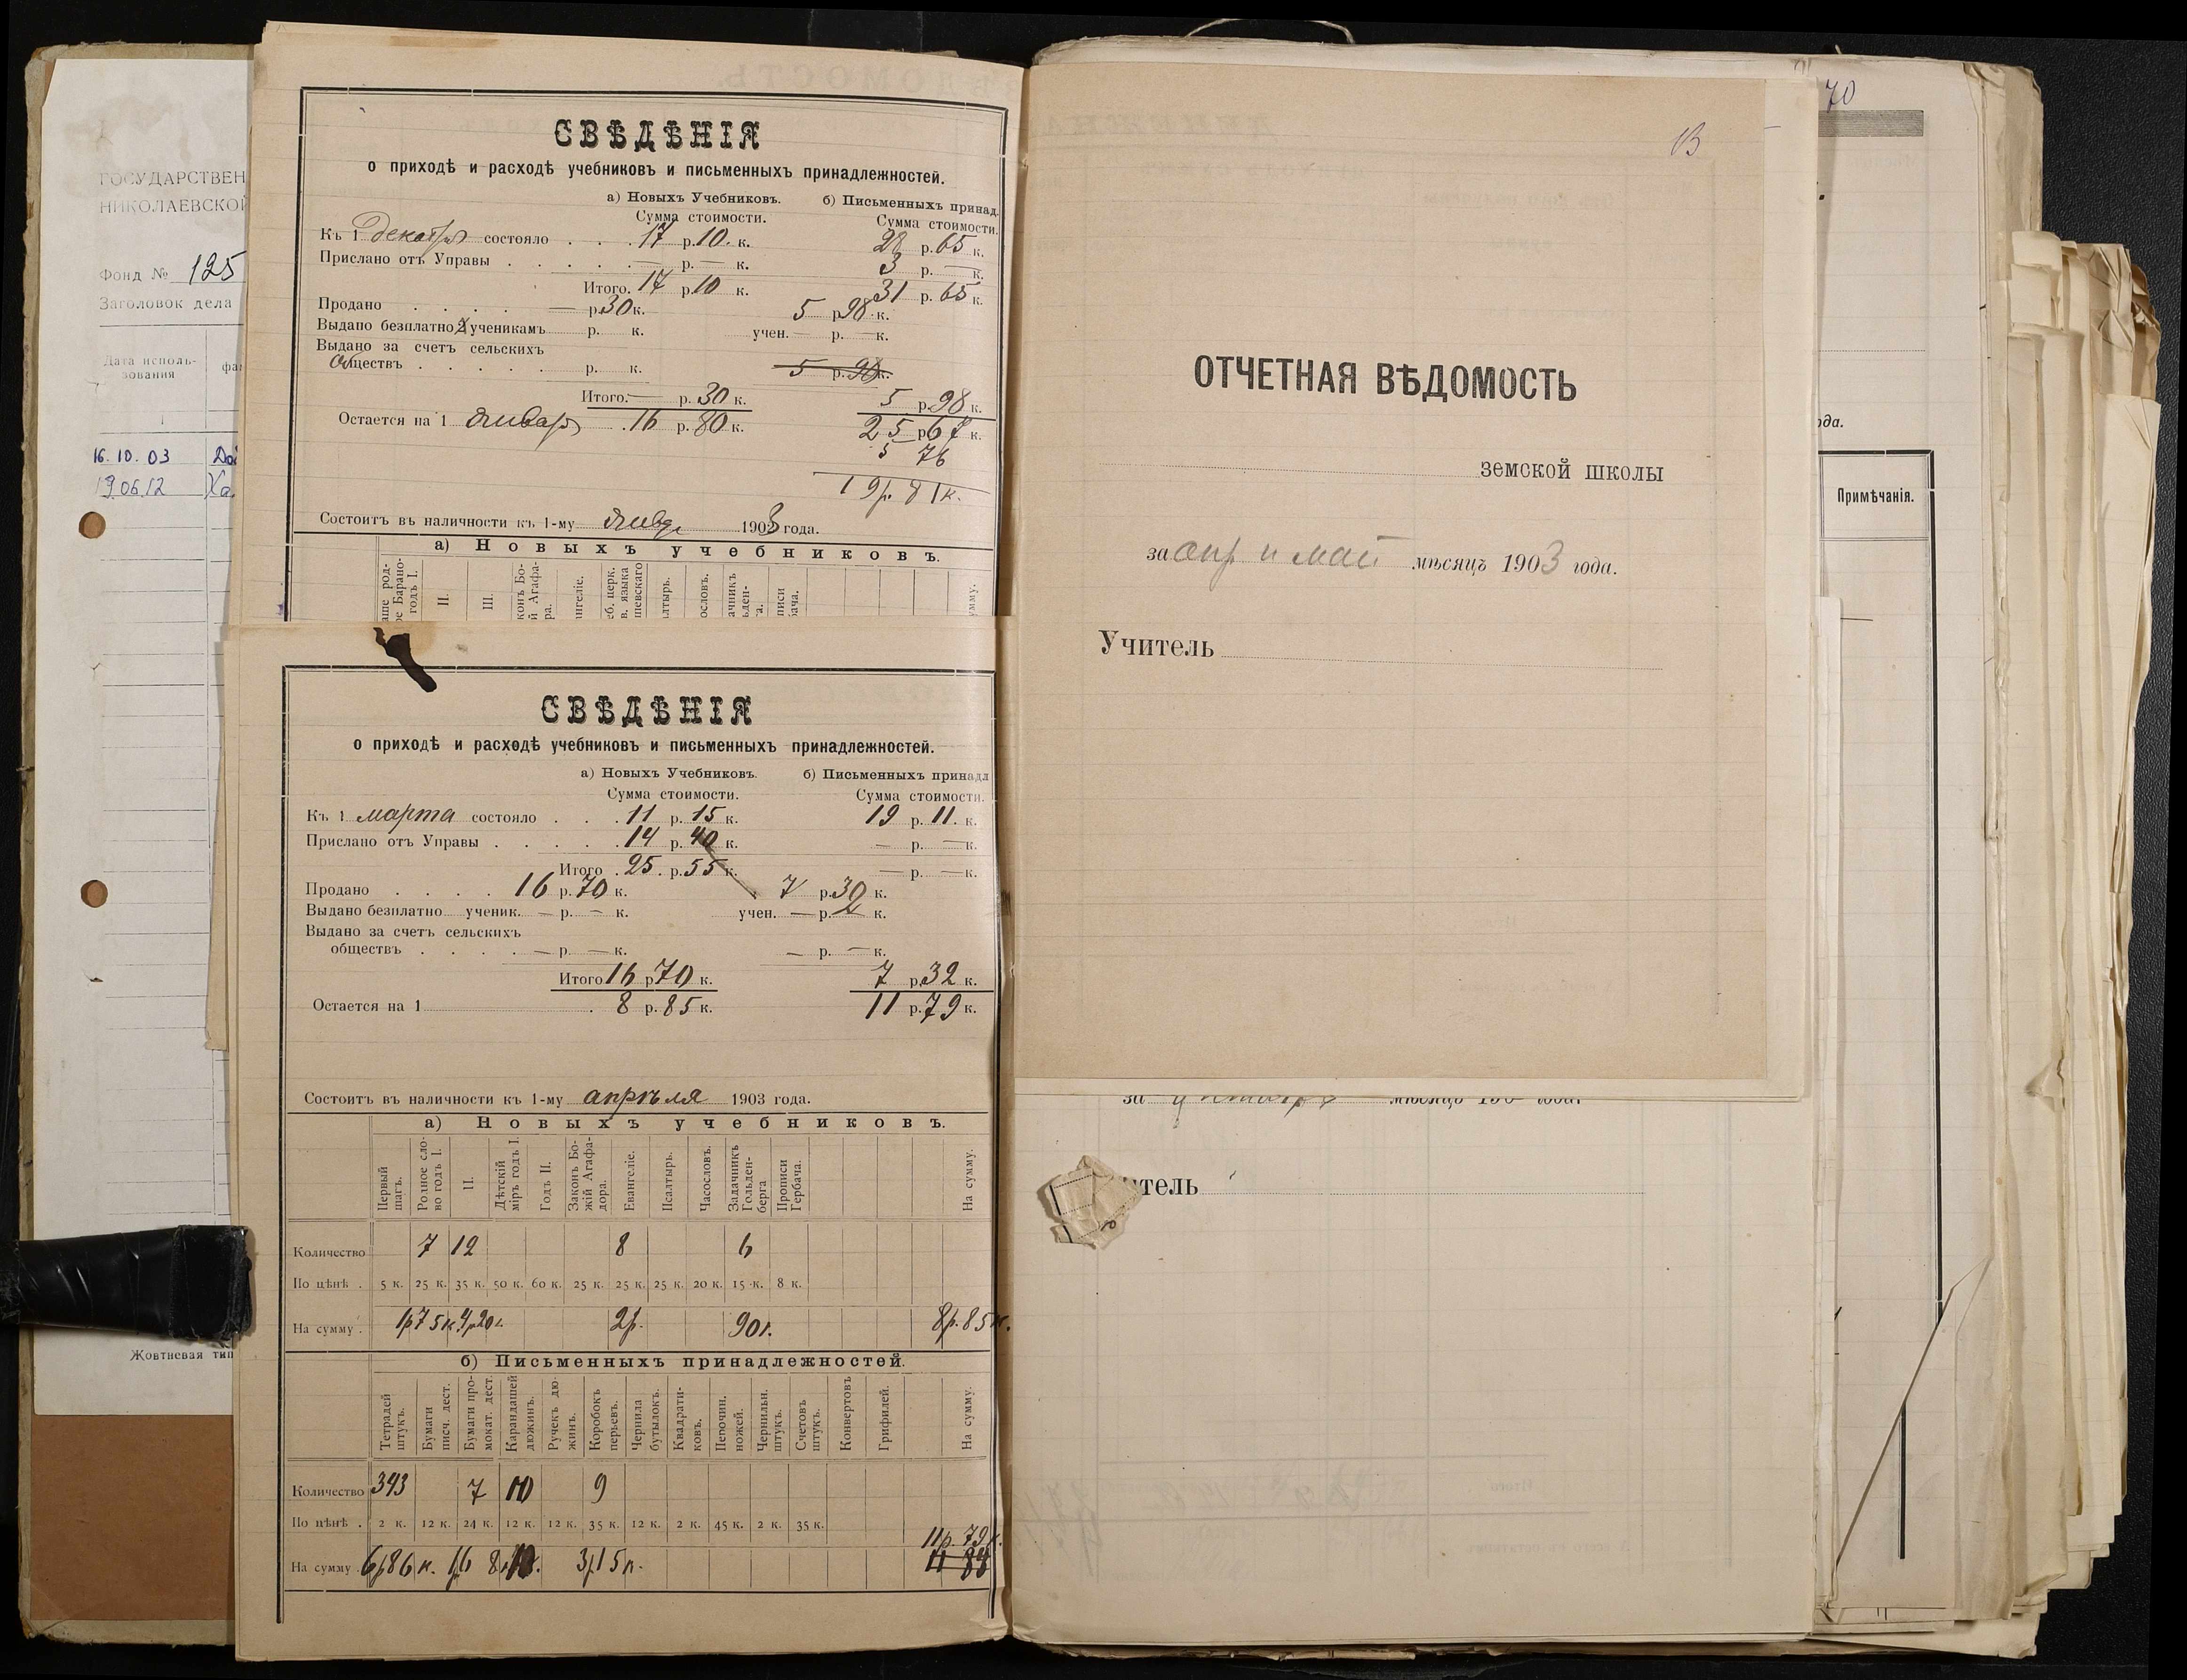 ГОСУДАРСТВЕН
НИКОЛАЕВСКОЙ
Фонд № 125
Заголовок дела
Дата исполь-
зования
1
16.10.03
19.06.12
Жовтневая тип
СВѢДѢНІЯ
о приходѣ и расходѣ учебниковъ и письменныхъ принадлежностей.
а) Новыхъ Учебниковъ. б) Письменныхъ принад.
Сумма стоимости. Сумма стоимости.
Къ 1 декабря состояло . . . 17 р. 10. к. 28 р. 65 к.
Прислано отъ Управы . . . . . — р. — к. 3 р. — к.
Итого. 17 р. 10 к. 31 р. 65 к.
Продано . . . . — р. 30 к. 5 р. 98 к.
Выдано безплатно 2 ученикамъ р. к. учен. — р. — к.
Выдано за счетъ сельскихъ
обществъ . . . . . р. к. 5 р. 98 к.
Итого. — р. 30 к. 5 р. 98 к.
Остается на 1 январ 16 р. 80 к. 25 р. 67 к.
5 76
19 р. 81 к.
Состоитъ въ наличности къ 1-му январ 1903 года.
а) Новыхъ учебниковъ.
II. III.
СВѢДѢНІЯ
о приходѣ и расходѣ учебниковъ и письменныхъ принадлежностей.
а) Новыхъ Учебниковъ. б) Письменныхъ принадл
Сумма стоимости. Сумма стоимости.
Къ 1 марта состояло . . . 11 р. 15 к. 19 р. 11. к.
Прислано отъ Управы . . . . . 14 р. 40 к. — р. — к.
Итого . 25. р. 55 к. — р. — к.
Продано . . . . 16 р. 70 к. 7 р. 30 к.
Выдано безплатно ученик. — р. — к. учен. — р. 2 к.
Выдано за счетъ сельскихъ
обществъ . . . . — р. — к. — р. — к.
Итого 16 р 70 к. 7 р. 32 к.
Остается на 1 . 8 р. 85 к. 11 р. 79 к.
Состоитъ въ наличности къ 1-му апрѣля 1903 года.
а) Новыхъ учебниковъ.
Первый шагъ. Родное сло-во годъ I. II. Дѣтскій міръ годъ I. Годъ II. Законъ Бо-жій Агафа-дора. Евангеліе. Псалтырь. Часословъ. Задачникъ Гольден-берга Прописи Гербача. На сумму.
Количество 7 12 8 6
По цѣнѣ . 5 к. 25 к. 35 к. 50 к. 60 к. 25 к. 25 к. 25 к. 20 к. 15 к. 8 к.
На сумму . 1р 75 к 4р 20 к. 2р. 90 к. 8р. 85 к.
б) Письменныхъ принадлежностей.
Тетрадей штукъ. Бумаги писч. дест. Бумаги про-мокат. дест. Карандашей дюжинъ. Ручекъ дю-жинъ. Коробокъ перьевъ. Чернила бутылокъ. Квадрати-ковъ. Перочин. ножей. Чернильн. штукъ. Счетовъ штукъ. Конвертовъ Грифилей. На сумму.
Количество 393 7 10 9
По цѣнѣ . 2 к. 12 к. 24 к. 12 к. 12 к. 35 к. 12 к. 2 к. 45 к. 2 к. 35 к.
11р. 79 к.
На сумму . 6р 86 к. 1р 6 8 к 10 к. 3р 15 к.
ОТЧЕТНАЯ ВѢДОМОСТЬ
земской школы
за апр и май мѣсяцъ 1903 года.
Учитель
за мѣсяцъ 190 года.
тель
70
ода.
Примѣчанія.